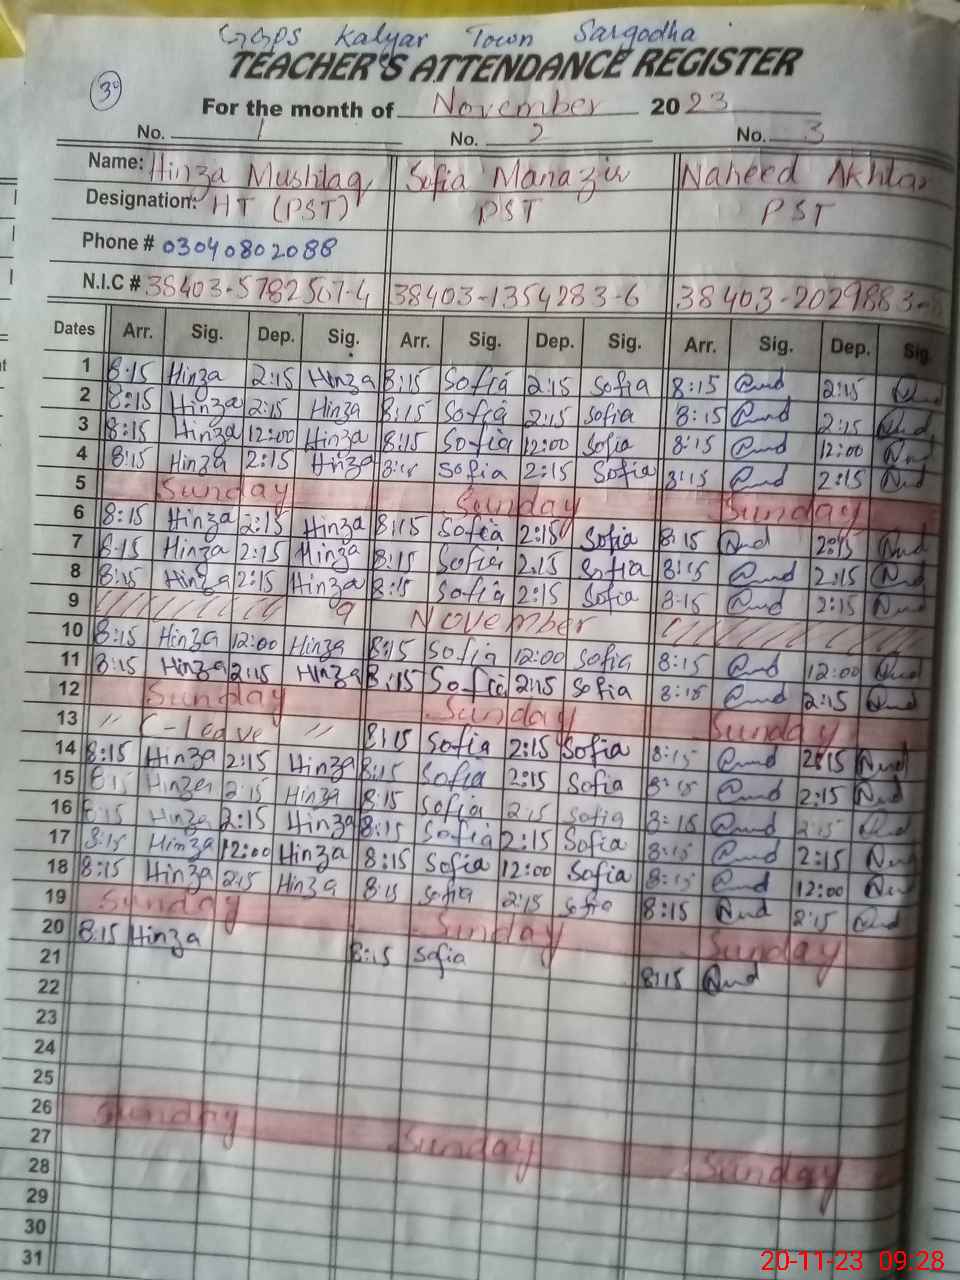 GGPS Kalyar Town Sargodha
TEACHER'S ATTENDANCE REGISTER
30
For the month of November 2023
No. 1 No. 2 No. 3
Name: Hinza Mushtaq Sofia Manazir Naheed Akhtar
Designation: HT (PST) PST PST
Phone # 03040802088
N.I.C # 38403-5782507-4 38403-1354283-6 38403-2029883-
Dates Arr. Sig. Dep. Sig. Arr. Sig. Dep. Sig. Arr. Sig. Dep. Sig.
1 8:15 Hinza 2:15 Hinza 8:15 Sofia 2:15 Sofia 8:15 2:15
2 8:15 Hinza 2:15 Hinza 8:15 Sofia 2:15 Sofia 8:15 2:15
3 8:15 Hinza 12:00 Hinza 8:15 Sofia 12:00 Sofia 8:15 12:00
4 8:15 Hinza 2:15 Hinza 8:15 Sofia 2:15 Sofia 8:15 2:15
5 Sunday Sunday Sunday
6 8:15 Hinza 2:15 Hinza 8:15 Sofia 2:15 Sofia 8:15 2:15
7 8:15 Hinza 2:15 Hinza 8:15 Sofia 2:15 Sofia 8:15 2:15
8 8:15 Hinza 2:15 Hinza 8:15 Sofia 2:15 Sofia 8:15 2:15
9 9 November
10 8:15 Hinza 12:00 Hinza 8:15 Sofia 12:00 Sofia 8:15 12:00
11 8:15 Hinza 2:15 Hinza 8:15 Sofia 2:15 Sofia 8:15 2:15
12 Sunday Sunday Sunday
13 " C-leave " 8:15 Sofia 2:15 Sofia 8:15 2:15
14 8:15 Hinza 2:15 Hinza 8:15 Sofia 2:15 Sofia 8:15 2:15
15 8:15 Hinza 2:15 Hinza 8:15 Sofia 2:15 Sofia 8:15 2:15
16 8:15 Hinza 2:15 Hinza 8:15 Sofia 2:15 Sofia 8:15 2:15
17 8:15 Hinza 12:00 Hinza 8:15 Sofia 12:00 Sofia 8:15 12:00
18 8:15 Hinza 2:15 Hinza 8:15 Sofia 2:15 Sofia 8:15 2:15
19 Sunday Sunday Sunday
20 8:15 Hinza 8:15 Sofia 8:15
21
22
23
24
25
26 Sunday Sunday Sunday
27
28
29
30
31
20-11-23 09:28